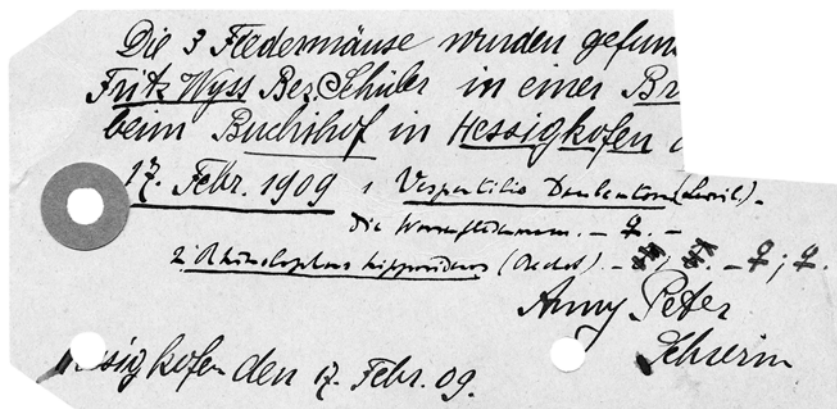 Die 3 Fledermäuse wurden gefun
Fritz Wyss Bez. Schüler in einer Br
beim Buchihof in Hessigkofen
17. Febr. 1909 1 Vespertilio Daubentoni
Die Wasserfledermaus. – ♀. –
2 Rhinolophus hipposideros (Bechst). – ♀; ♀.
Anny Peter
Hessigkofen den 17. Febr. 09.